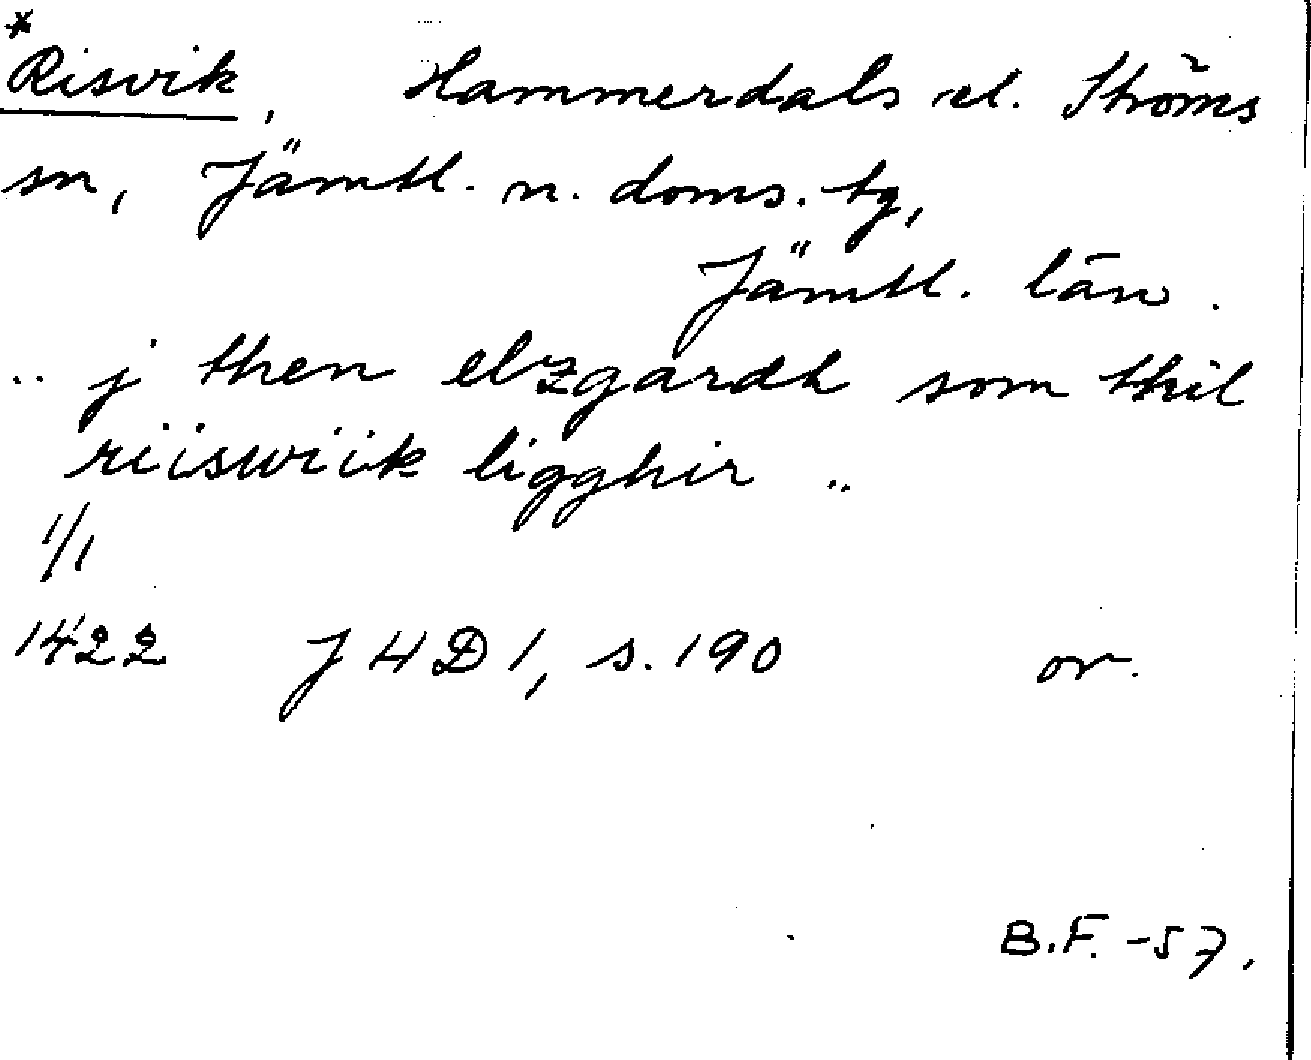 *
Risvik, Hammerdals el. Ströms
sn, Jämtl. n. doms. tg,
Jämtl. län.
.. j then elzgardh som thil
riiswiik ligghir ..
1/1
1422 J H D 1, s. 190 or.
B.F. -57.